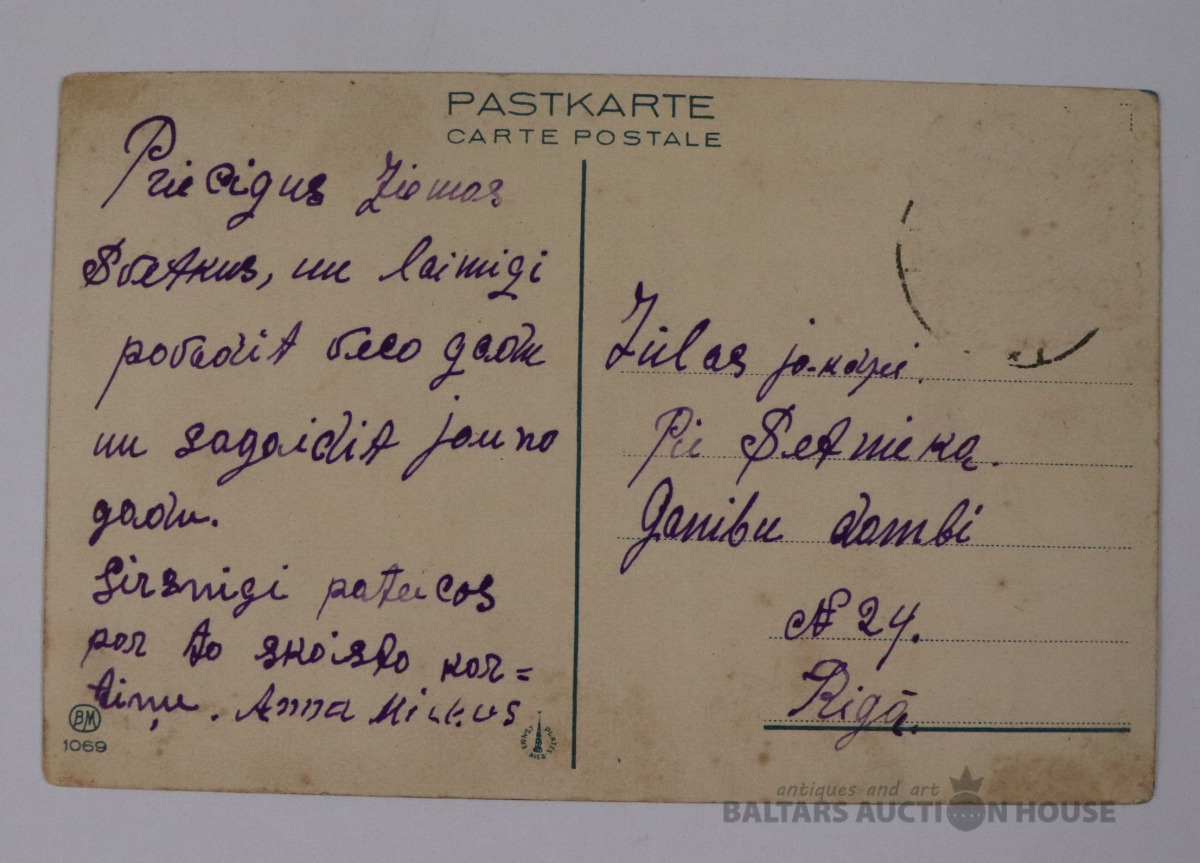 PASTKARTE
CARTE POSTALE
Priecigus Ziemas
Svetkus, un laimigi
pavadit veco gadu
un sagaidit jauno
gadu.
Sirsnigi pateicos
par to skaisto kar=
tiņu. Anna
BM
1069
ERNST PLATES RIGA
Zūlas
Pie Setnieka.
Ganibu dambi
№ 24.
Rigā.
antiques and art
BALTARS AUCTION HOUSE